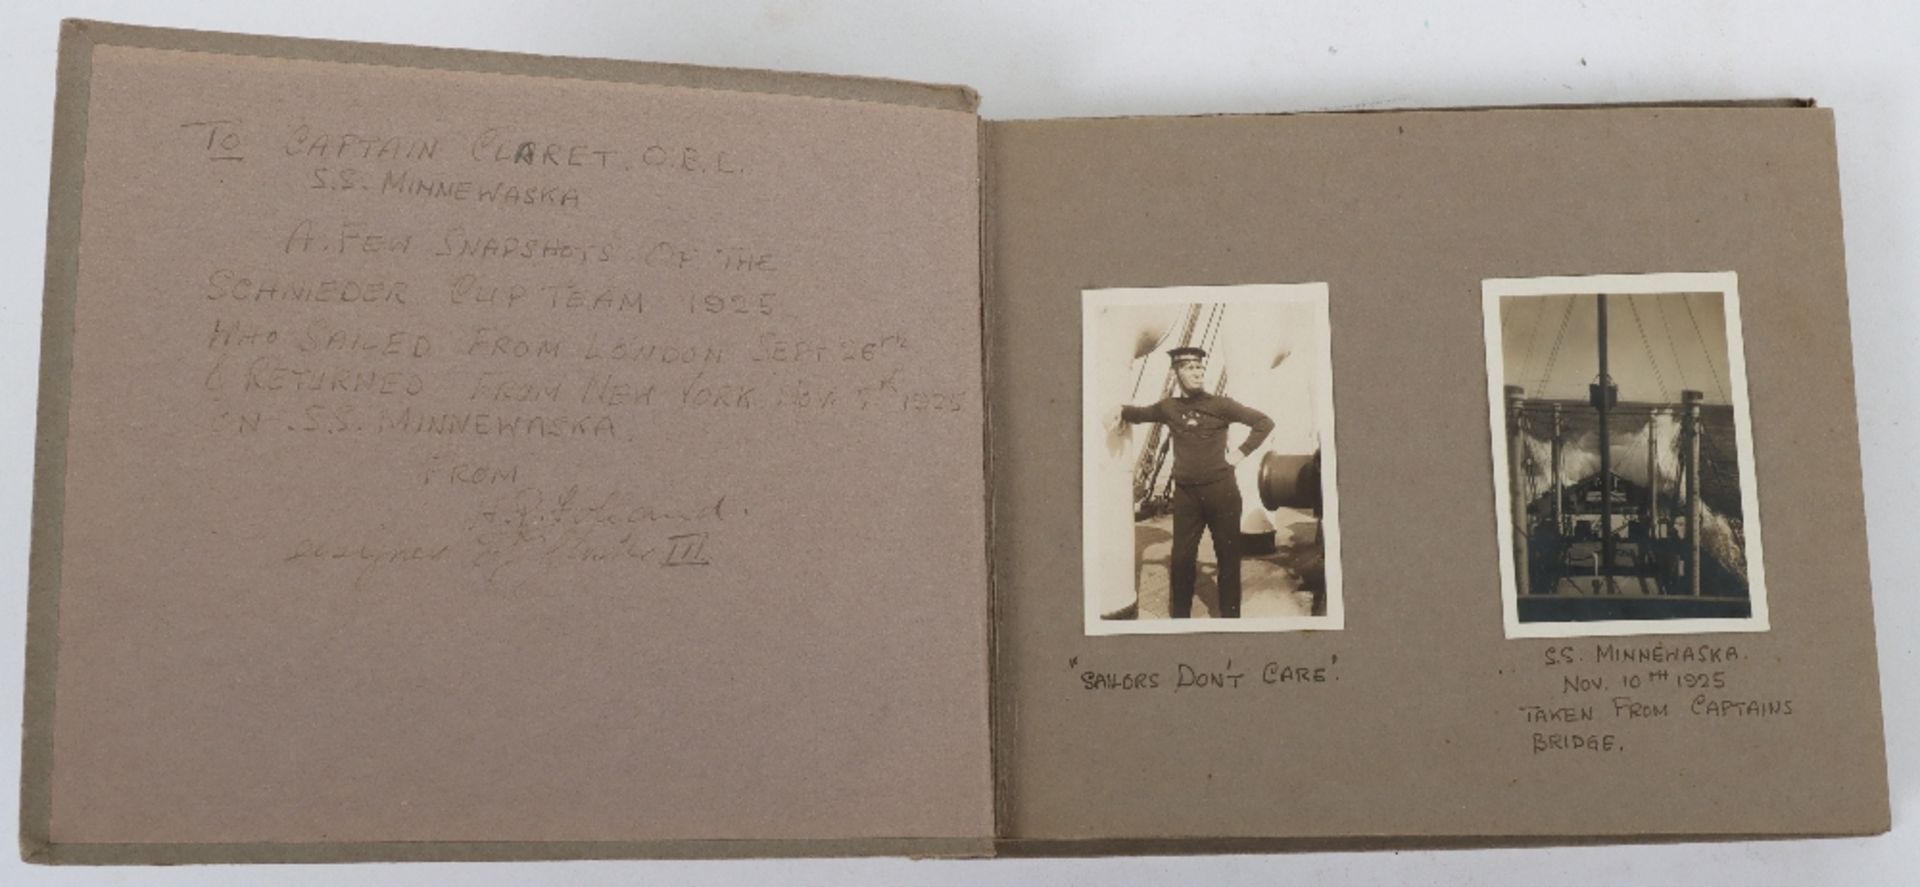 TO CAPTAIN CLARET. O.B.E.
S.S. MINNEWASKA
A. FEW SNAPSHOTS OF THE
SCHNIEDER CUP TEAM 1925
WHO SAILED FROM LONDON SEPT 26TH
& RETURNED FROM NEW YORK NOV. 7th 1925
ON S.S. MINNEWASKA.
FROM
designer of III
"SAILORS DON'T CARE".
S.S. MINNEWASKA.
NOV. 10TH 1925
TAKEN FROM CAPTAINS
BRIDGE.